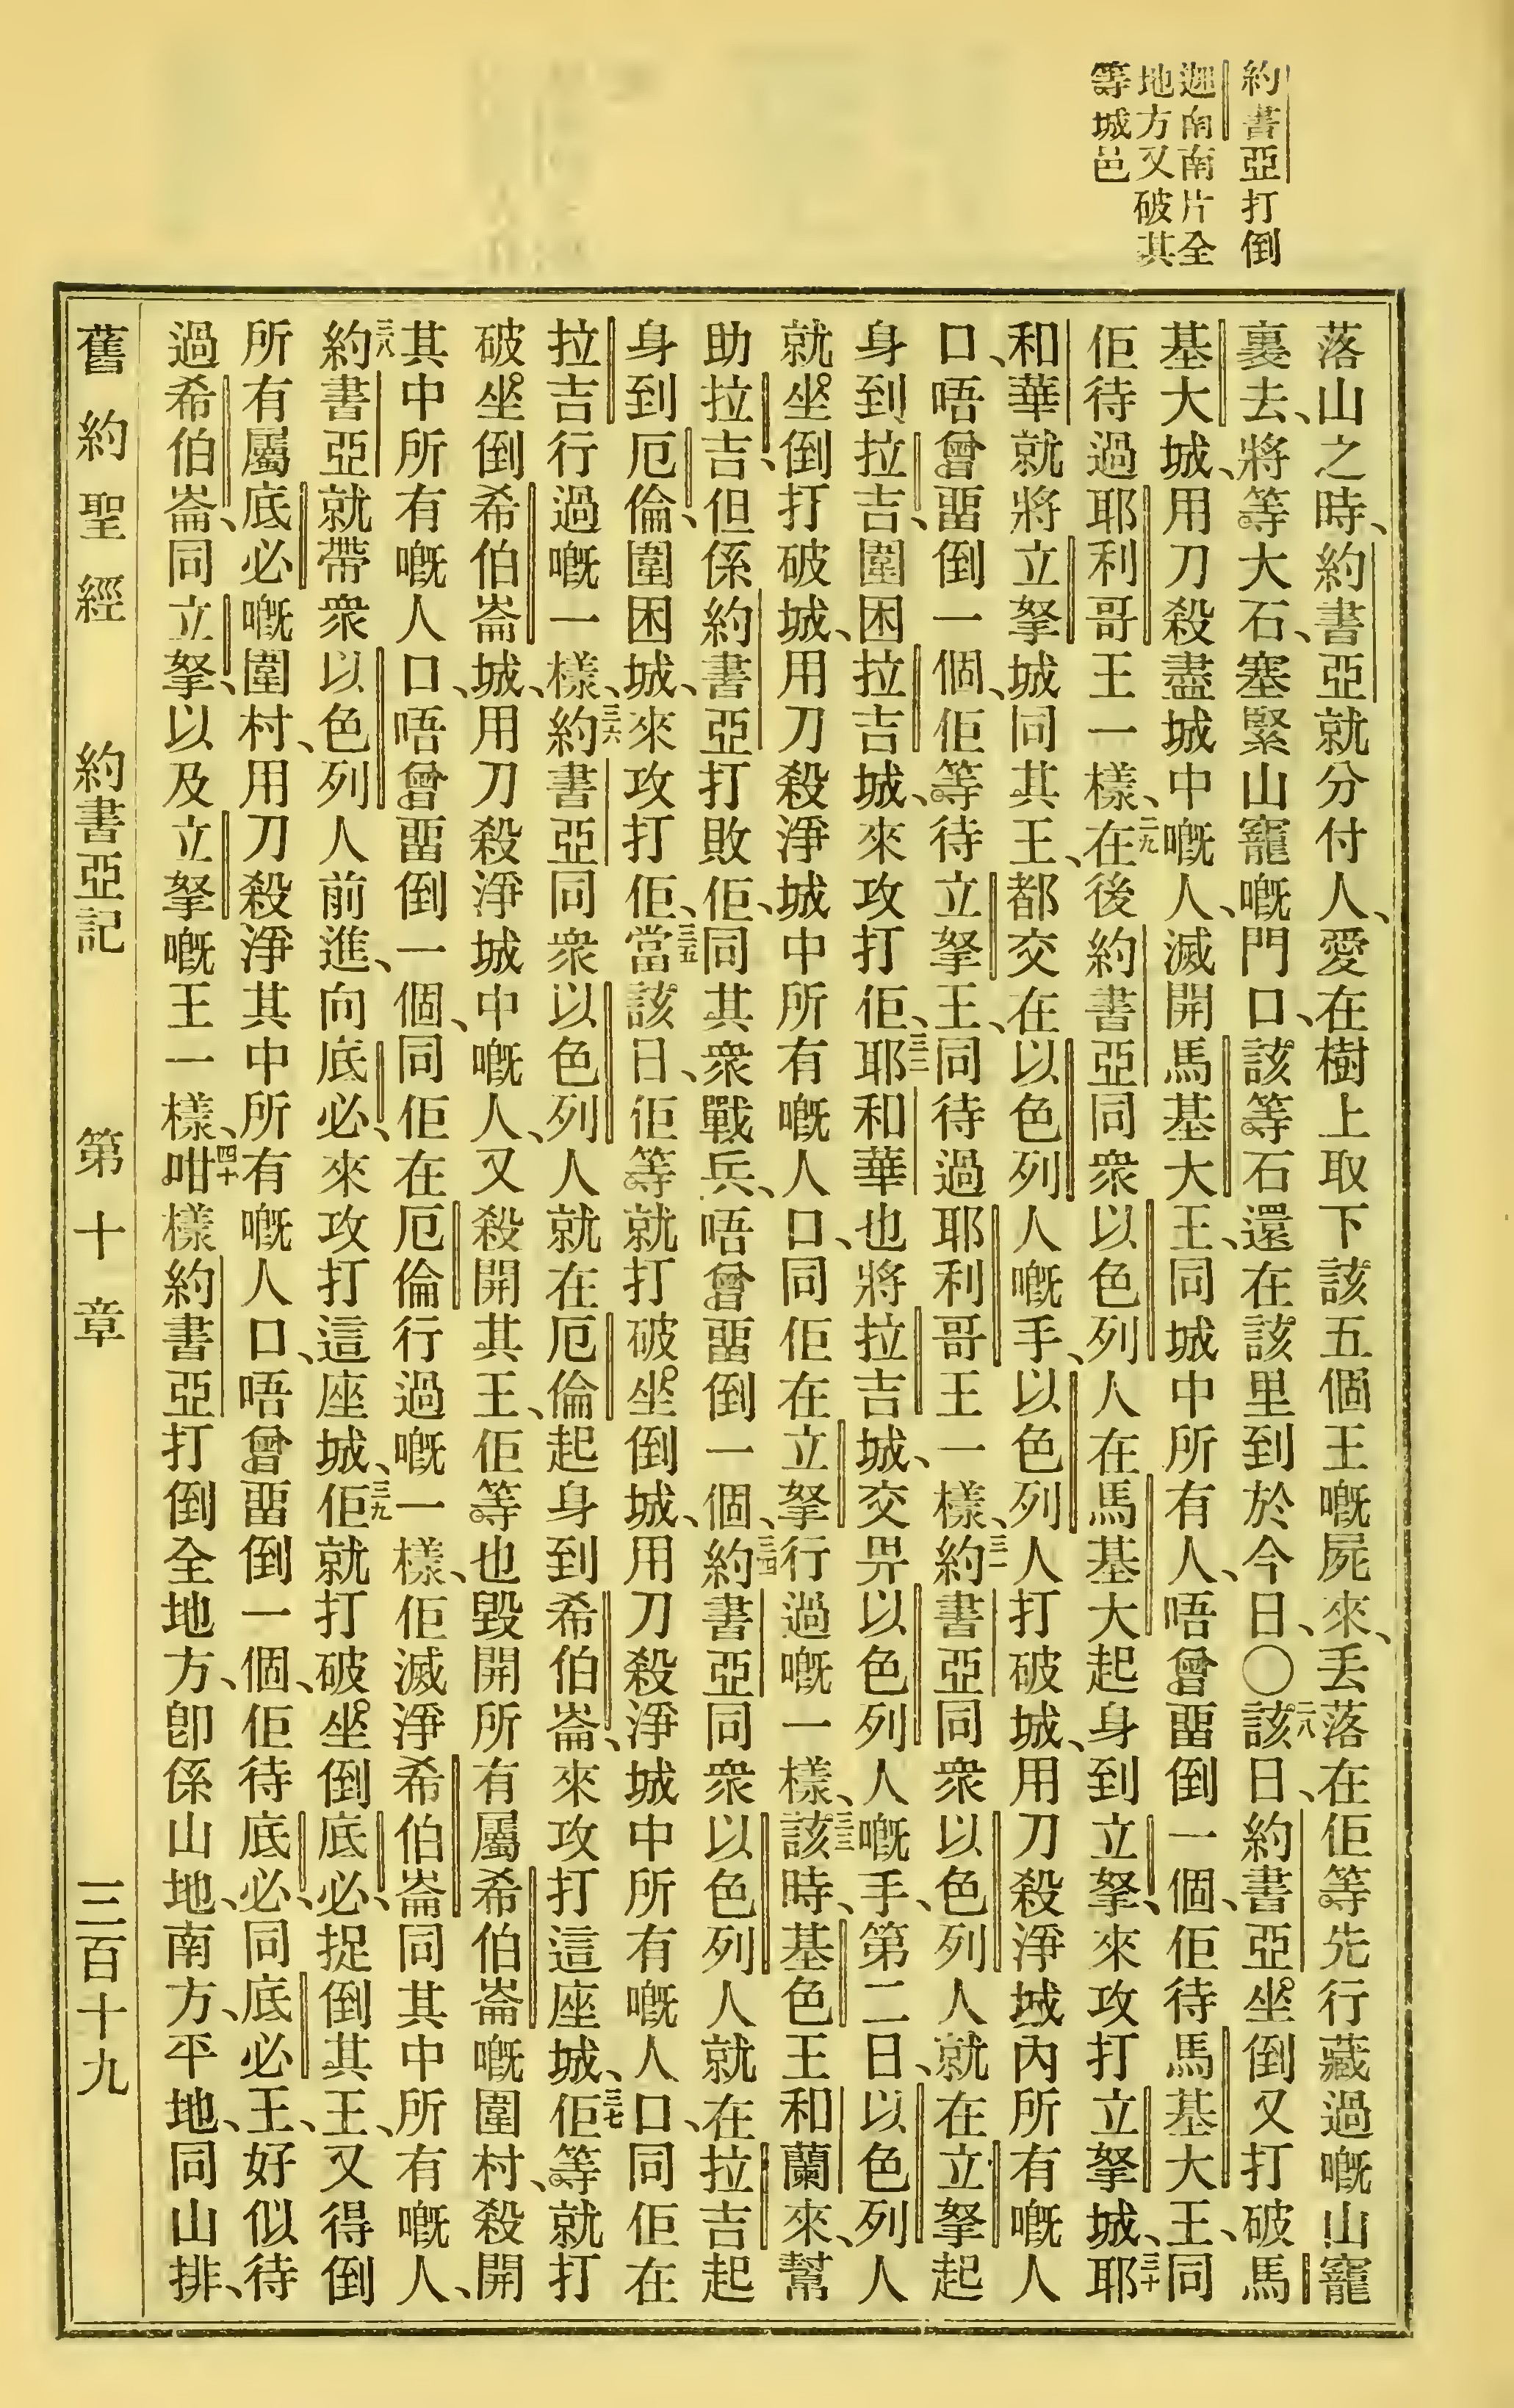 約書亞打倒
迦南南片全
地方又破其
等城邑
落山之時、約書亞就分付人、愛在樹上取下該五個王嘅屍來、丢落在佢等先行藏過嘅山寵
裏去、將等大石、塞緊山寵嘅門口、該等石還在該里到於今日、〇二八該日、約書亞坐倒又打破馬
基大城、用刀殺盡城中嘅人、滅開馬基大王、同城中所有人、唔曾畱倒一個、佢待馬基大王、同
佢待過耶利哥王一樣、二九在後約書亞同衆以色列人在馬基大起身到立拏、來攻打立拏城、三十耶
和華就將立拏城同其王、都交在以色列人嘅手、以色列人打破城、用刀殺淨城內所有嘅人
口、唔曾畱倒一個、佢等待立拏王、同待過耶利哥王一樣、三一約書亞同衆以色列人就在立拏起
身到拉吉、圍困拉吉城、來攻打佢、三二耶和華也將拉吉城、交畀以色列人嘅手、第二日、以色列人
就坐倒打破城、用刀殺淨城中所有嘅人口、同佢在立拏行過嘅一樣、三三該時、基色王和蘭來、幫
助拉吉、但係約書亞打敗佢、同其衆戰兵、唔曾畱倒一個、三四約書亞同衆以色列人就在拉吉起
身到厄倫、圍困城、來攻打佢、三五當該日、佢等就打破坐倒城、用刀殺淨城中所有嘅人口、同佢在
拉吉行過嘅一樣、三六約書亞同衆以色列人就在厄倫起身到希伯崙、來攻打這座城、三七佢等就打
破坐倒希伯崙城、用刀殺淨城中嘅人、又殺開其王、佢等也毀開所有屬希伯崙嘅圍村、殺開
其中所有嘅人口、唔曾畱倒一個、同佢在厄倫行過嘅一樣、佢滅淨希伯崙同其中所有嘅人、
三八約書亞就帶衆以色列人前進、向底必、來攻打這座城、三九佢就打破坐倒底必、捉倒其王、又得倒
所有屬底必嘅圍村、用刀殺淨其中所有嘅人口、唔曾畱倒一個、佢待底必、同底必王、好似待
過希伯崙、同立拏、以及立拏嘅王一樣、四十咁樣約書亞打倒全地方、卽係山地、南方、平地、同山排、
舊約聖經 約書亞記 第十章 三百十九